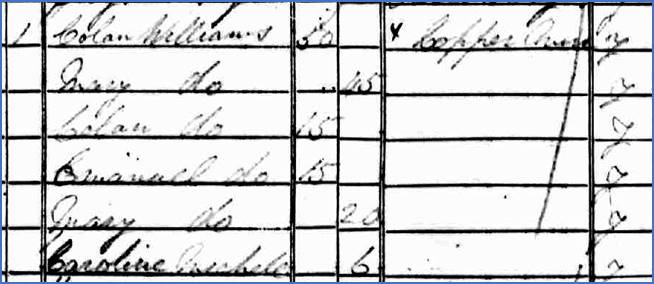 1 Colan Williams 50 Copper Mine y
Mary do 45 y
Colan do 15 y
Emanuel do 15 y
Mary do 20 y
Caroline Michell 6 y